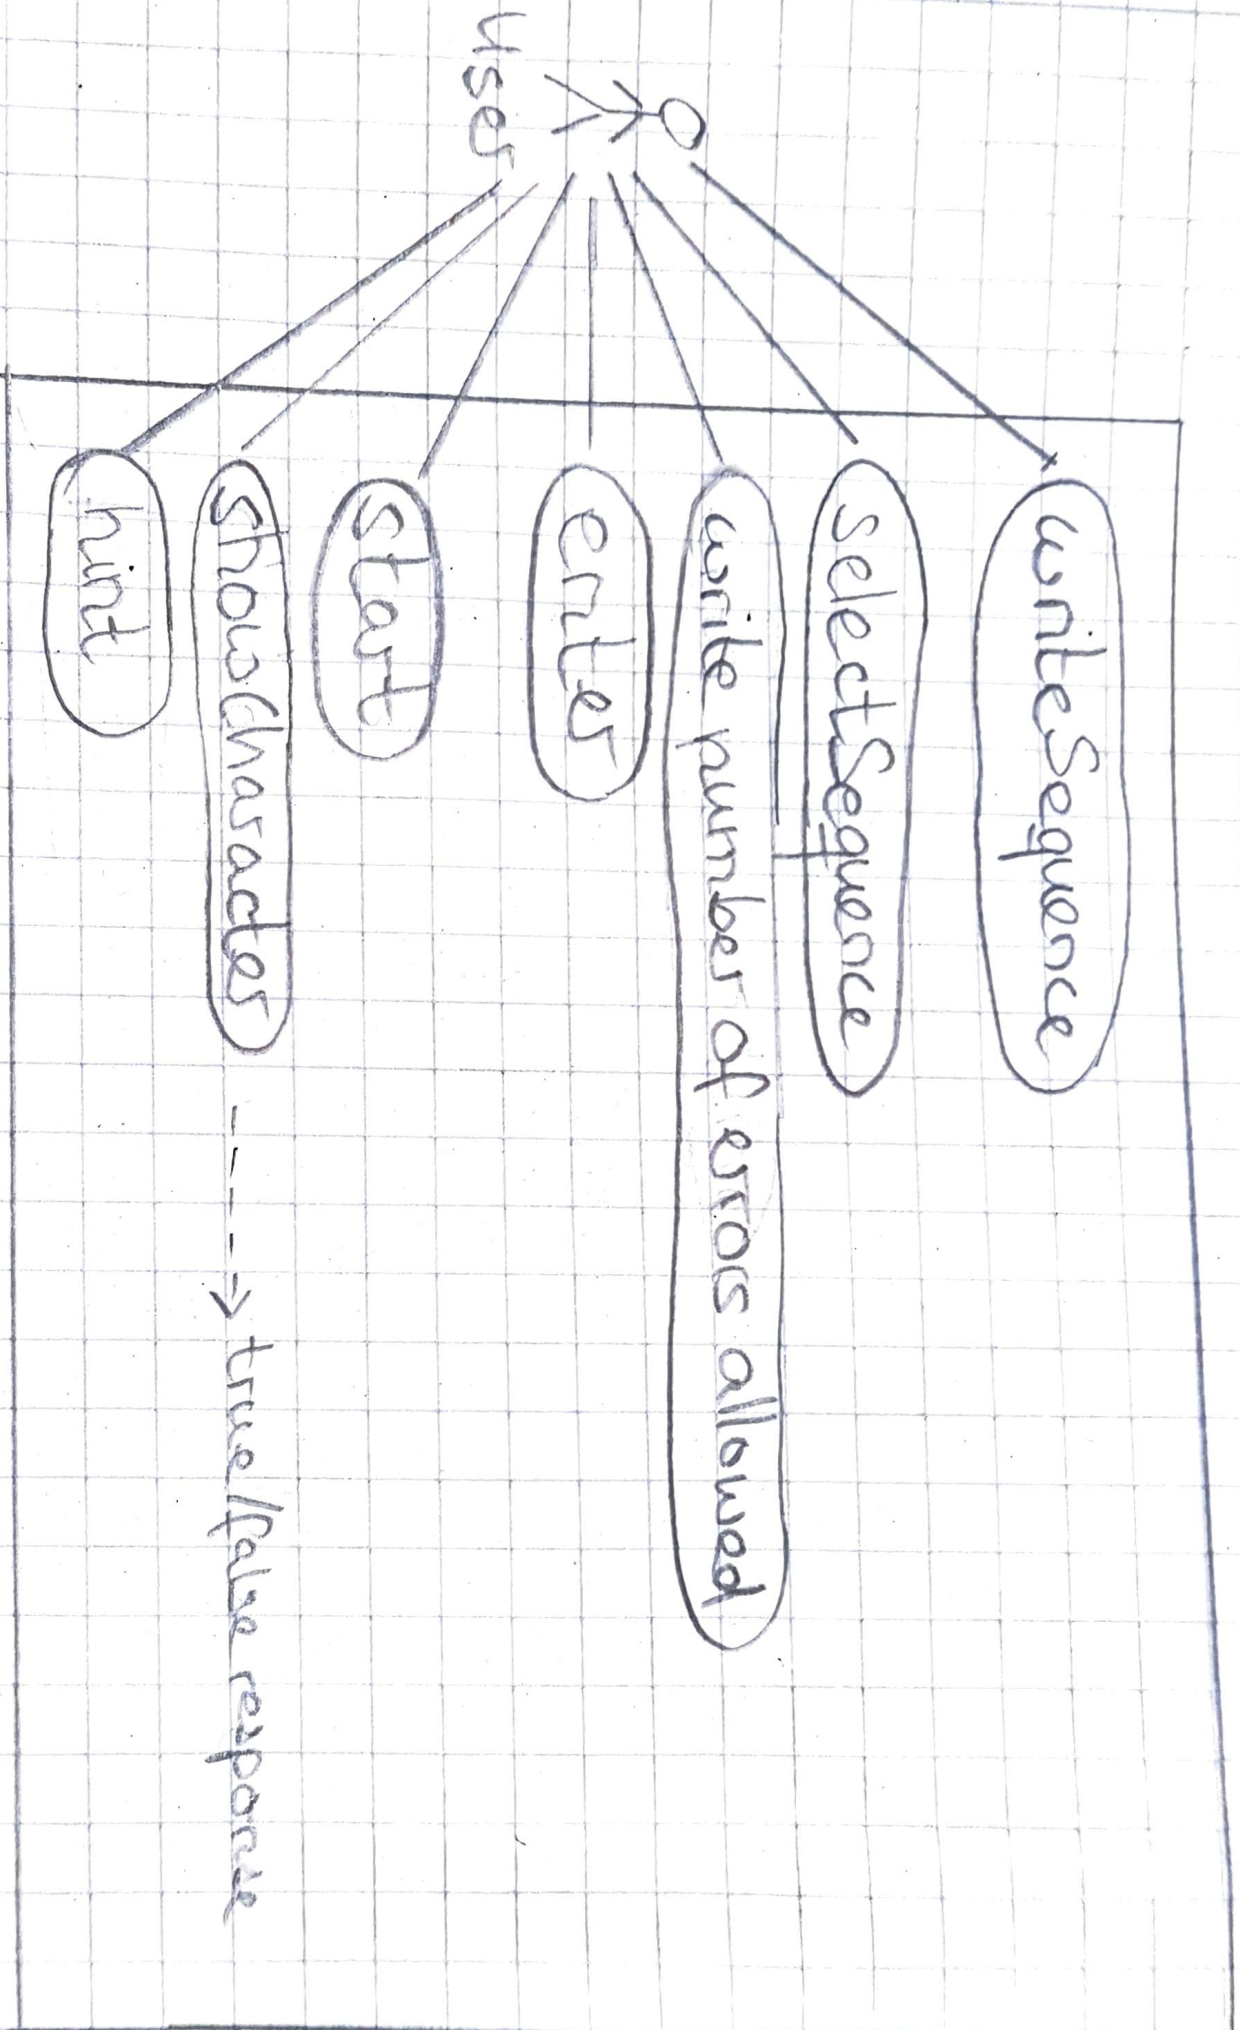 writeSequence
selectSequence
write number of errors allowed
User
enter
start
showCharacter ----> true/false response
hint